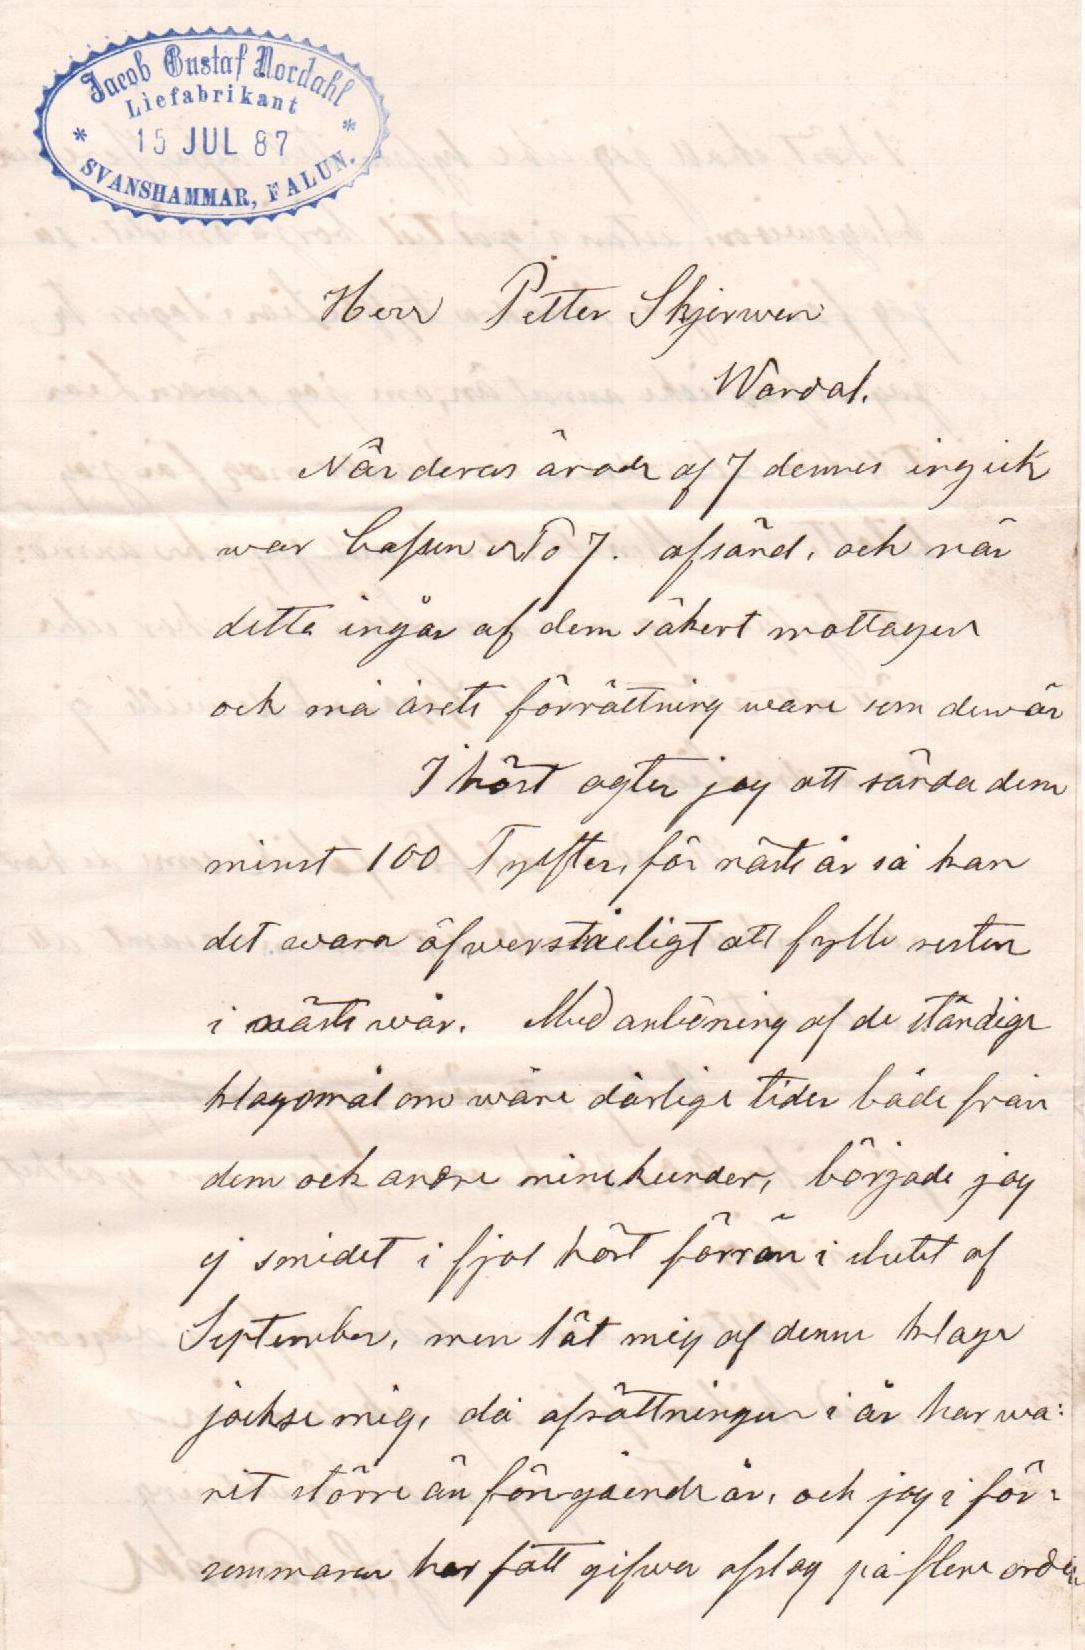 Jacob Gustaf Nordahl
Liefabrikant
* 15 JUL 87 *
SVANSHAMMAR, FALUN.
Herr Petter Skjerwen
Wardal.
När deras ärade af 7 dennes ingick
war Cassen No 7. afsänd, och när
detta ingår af dem säkert mottagen
och må årets förrättning ware som de wär
I höst agter jag att sända dem
minst 100 Tylfter, för nästa år så kan
det wara öfwerståeligt att fylle resten
i nästa wår. Med anledning af de ständiga
klagomål om wåre dårlige tider både från
dem och andre mine kunder, började jag
ej smidet i fjol höst förrän i slutet af
September, men låt mig af denne klage
jaekse mig, då afsättningen i år har wa:
rit större än föregående år, och jag i för:
sommaren har fått gifwa afslag på flere order